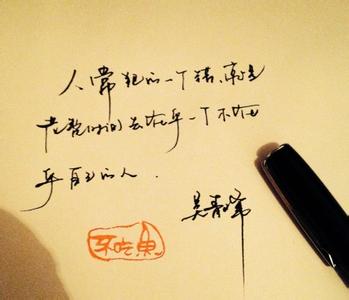 人常犯的一个错,就是
花费时间去在乎一个不在
乎自己的人.
吴青峰
不吃鱼